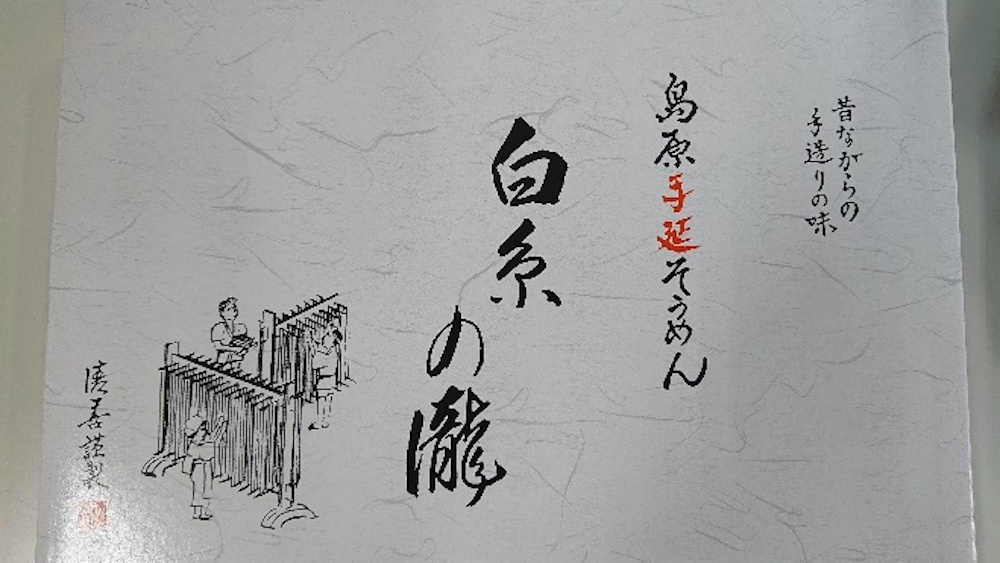 昔ながらの
手造りの味
島原手延そうめん
白糸の瀧
廣喜謹製